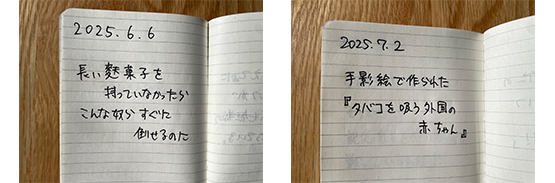 2025.6.6
長い麩菓子を
持っていなかったら
こんな奴らすぐに
倒せるのに
2025.7.2
手影絵で作られた
『タバコを吸う外国の
赤ちゃん』